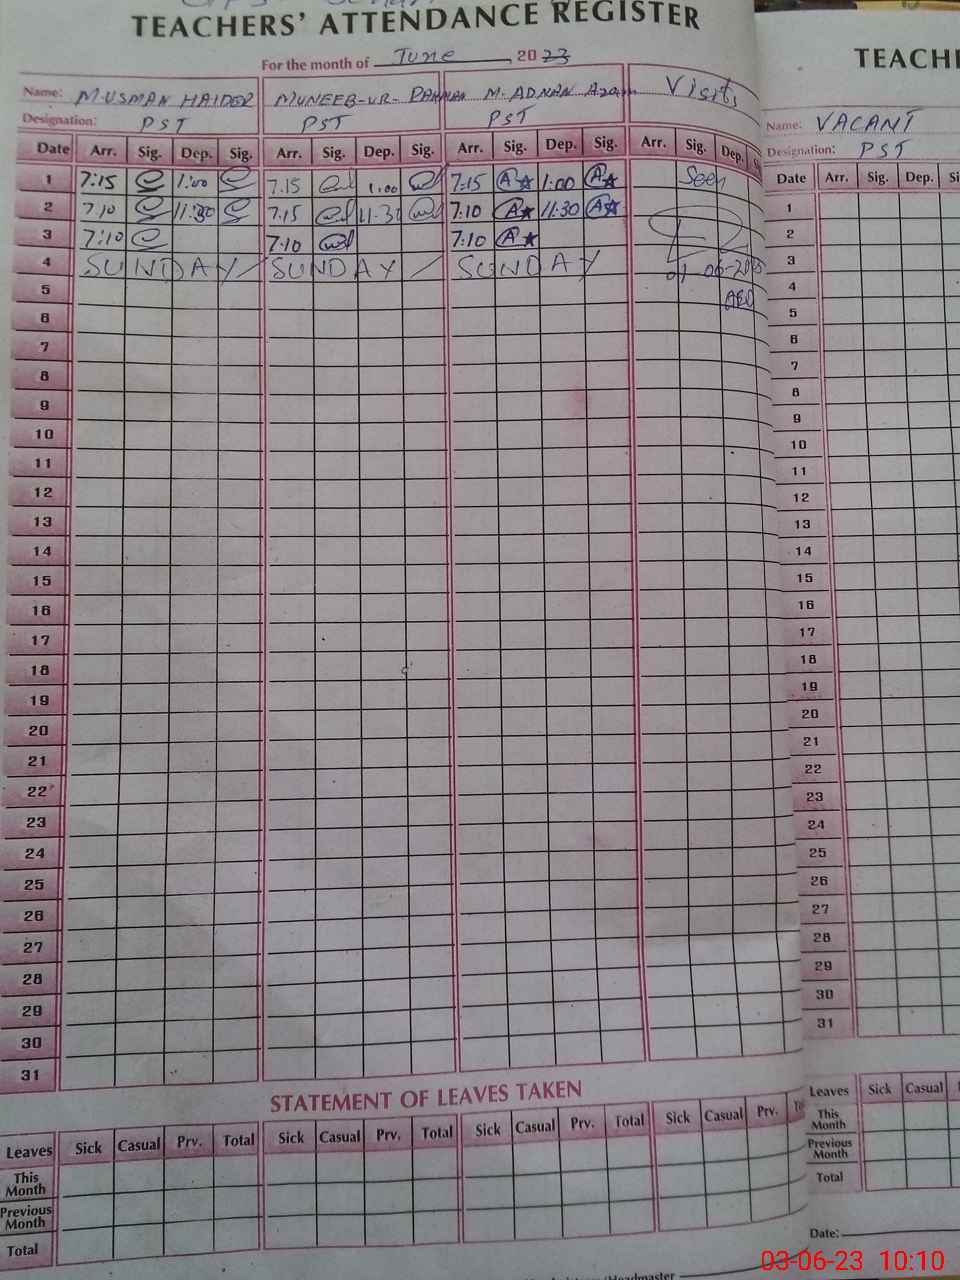 TEACHERS' ATTENDANCE REGISTER
For the month of June, 2023
Name: M.USMAN HAIDER MUNEEB-UR- RAHMAN M. ADNAN Azam Visits
Designation: PST PST PST
Date Arr. Sig. Dep. Sig. Arr. Sig. Dep. Sig. Arr. Sig. Dep. Sig. Arr. Sig. Dep.
1 7:15 1:00 7:15 1:00 7:15 A 1:00 A Seen
2 7:10 11:30 7:15 11:30 7:10 A 11:30 A
3 7:10 7:10 7:10 A
4 SUNDAY SUNDAY SUNDAY
5 AEO
6
7
8
9
10
11
12
13
14
15
16
17
18
19
20
21
22
23
24
25
26
27
28
29
30
31
STATEMENT OF LEAVES TAKEN
Leaves Sick Casual Prv. Total Sick Casual Prv. Total Sick Casual Prv. Total Sick Casual Prv.
This Month
Previous Month
Total
Headmaster
TEACH
Name: VACANT
Designation: PST
Date Arr. Sig. Dep.
1
2
3
4
5
6
7
8
9
10
11
12
13
14
15
16
17
18
19
20
21
22
23
24
25
26
27
28
29
30
31
Leaves Sick Casual
This Month
Previous Month
Total
Date:
03-06-23 10:10